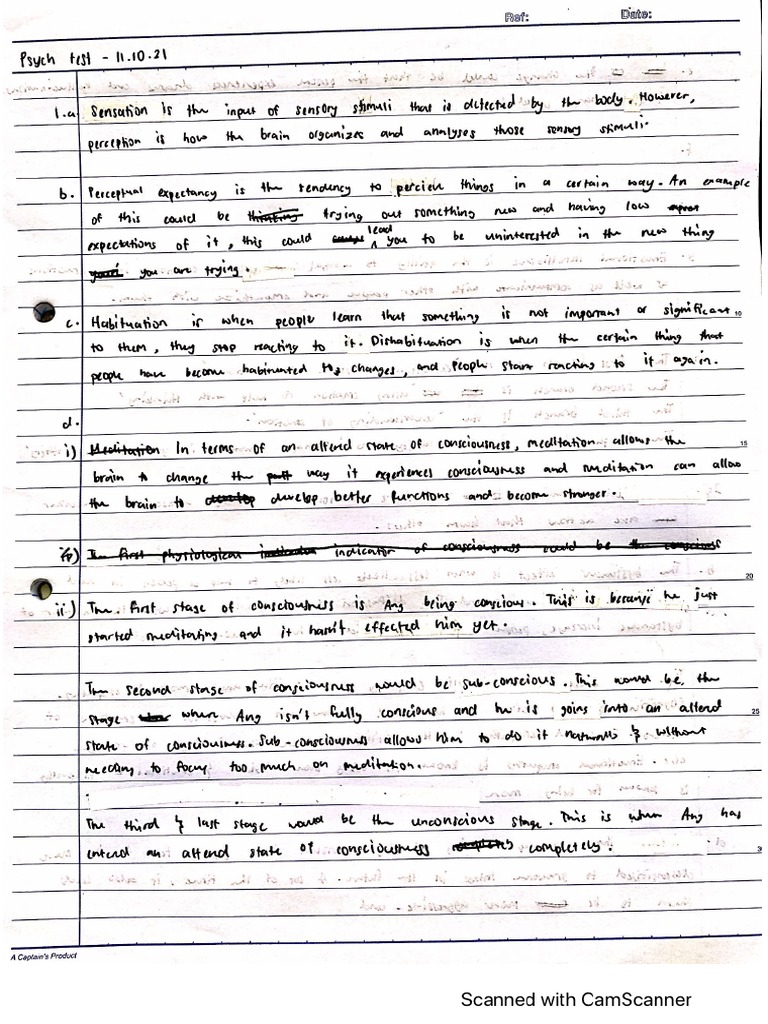 Ref: Date:
Psych test - 11.10.21
1.a. Sensation is the input of sensory stimuli that is detected by the body. However,
perception is how the brain organizes and analyses those sensory stimuli.
b. Perceptual expectancy is the tendency to percieve things in a certain way. An example
of this could be thinking trying out something new and having low
expectations of it, this could lead you to be uninterested in the new thing
you are trying.
c. Habituation is when people learn that something is not important or significant 10
to them, they stop reacting to it. Dishabituation is when the certain thing that
people have become habinuated to, changes, and people start reacting to it again.
d.
i) Meditation In terms of an altered state of consciousness, meditation allows the 15
brain to change the way it experiences consciousness and meditation can allow
the brain to develop develop better functions and become stronger.
ii) The first physiological indicator indicator of consciousness could be the conscious
20
ii) The first stage of consciousness is Ang being conscious. This is because he just
started meditating and it hasn't effected him yet.
The second stage of consciousness would be sub-conscious. This would be the
stage when Ang isn't fully conscious and he is going into an altered 25
state of consciousness. Sub-consciousness allows him to do it naturally & without
needing to focus too much on meditation.
The third & last stage would be the unconscious stage. This is when Ang has
entered an altered state of consciousness completely completely. 30
A Captain's Product
Scanned with CamScanner